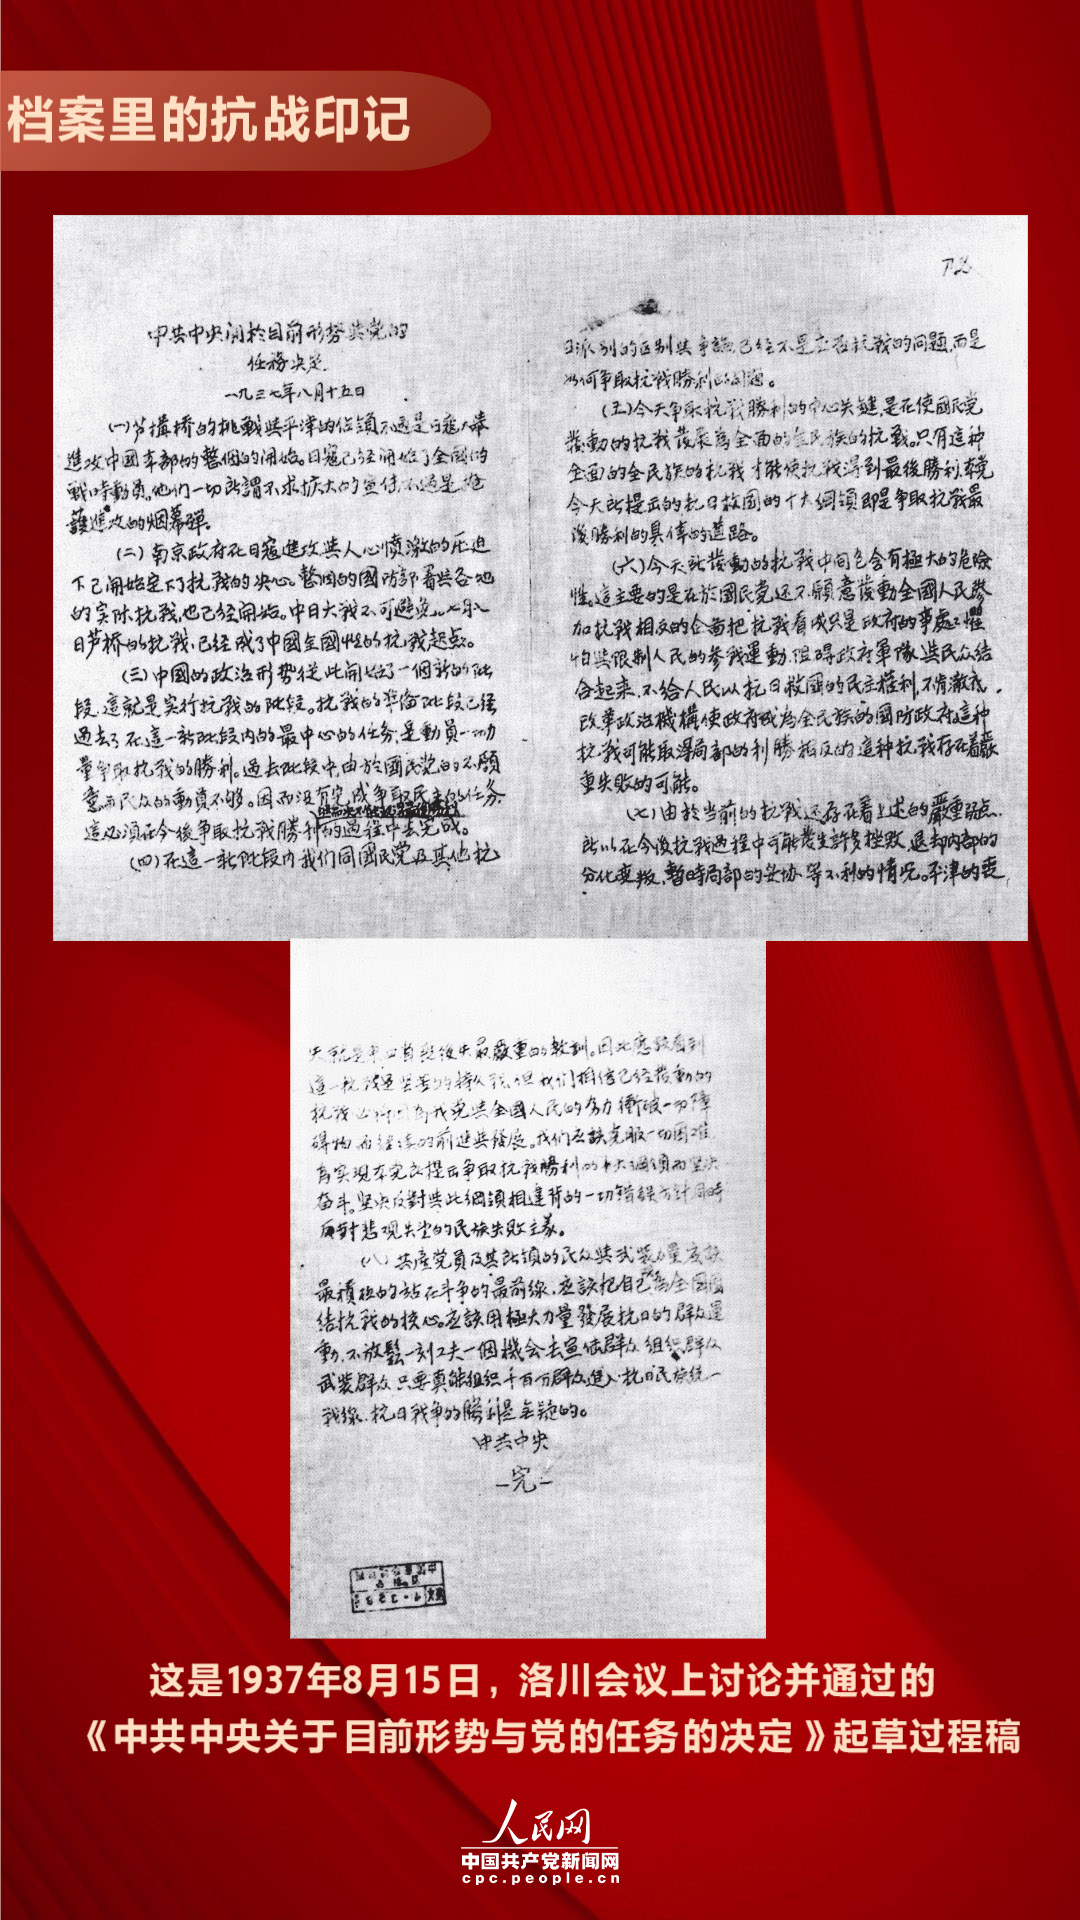 档案里的抗战印记
中共中央关於目前形势与党的
任務决定
一九三七年八月十五日
(一)芦溝桥的挑戰与平津的佔領不过是日寇大举
進攻中國本部的整個的開始。日寇已经開始了全國的
戰時動員。他们一切所謂不求扩大的宣传不过是掩
護進攻的烟幕弹。
(二)南京政府在日寇進攻与人心愤激的压迫
下已開始定下了抗戰的决心。整個的國防部署与各地
的实际抗戰,也已经開始。中日大戰不可避免。七月八
日芦桥的抗戰,已经成了中國全國性的抗戰起点。
(三)中國的政治形势從此開始了一個新的阶
段,這就是实行抗戰的阶段。抗戰的準备阶段已经
过去了。在這一新阶段内的最中心的任务,是動員一切力
量争取抗戰的勝利。过去阶段中,由於國民党的不願
意和民众的動員不够。因而没有完成争取民主的任务,
這必须在今後争取抗戰勝利的过程中去完成。
(四)在這一新阶段内我们同國民党及其他抗
日派别的区别与争論,已经不是应否抗戰的问题,而是
如何争取抗戰勝利的问题。
(五)今天争取抗戰勝利的中心关键,是在使國民党
發動的抗戰發展為全面的全民族的抗戰。只有這种
全面的全民族的抗戰,才能使抗戰得到最後勝利。本党
今天所提出的抗日救國的十大綱領,即是争取抗戰最
後勝利的具体的道路。
(六)今天所發動的抗戰中间包含有極大的危险
性。這主要的是在於國民党还不願意發動全國人民参
加抗戰。相反的,企图把抗戰看成只是政府的事,處處懼
怕与限制人民的参戰運動,阻碍政府軍隊与民众结
合起来,不给人民以抗日救國的民主權利,不肯澈底
改革政治機構,使政府成為全民族的國防政府。這种
抗戰可能取得局部的利勝,相反的,這种抗戰存在着嚴
重失败的可能。
(七)由於当前的抗戰还存在着上述的嚴重弱点,
所以在今後抗戰过程中,可能發生許多挫败、退却,内部的
分化叛变,暂時局部的妥协等不利的情况。平津的喪
失就是東四省喪失後最嚴重的教訓。因此應該看到
這一抗戰是坚苦的持久戰。但我们相信已经發動的
抗戰,必將因為我党与全國人民的努力,衝破一切障
碍物,而继续的前進与發展。我们应該克服一切困难,
為实现本党所提出争取抗戰勝利的十大綱領而坚决
奋斗。坚决反對与此綱領相違背的一切錯誤方針,同時
反對悲观失望的民族失败主義。
(八)共產党員及其所領的民众与武装力量,应該
最積極的站在斗争的最前線,应該把自己成為全國團
结抗戰的核心。应該用極大力量發展抗日的群众運
動,不放鬆一刻工夫一個機会去宣传群众,組織群众,
武装群众。只要真能組织千百万群众進入抗日民族統一
戰線,抗日戰争的勝利是無疑的。
中共中央
—完—
这是1937年8月15日，洛川会议上讨论并通过的
《中共中央关于目前形势与党的任务的决定》起草过程稿
人民网
中国共产党新闻网
cpc.people.cn